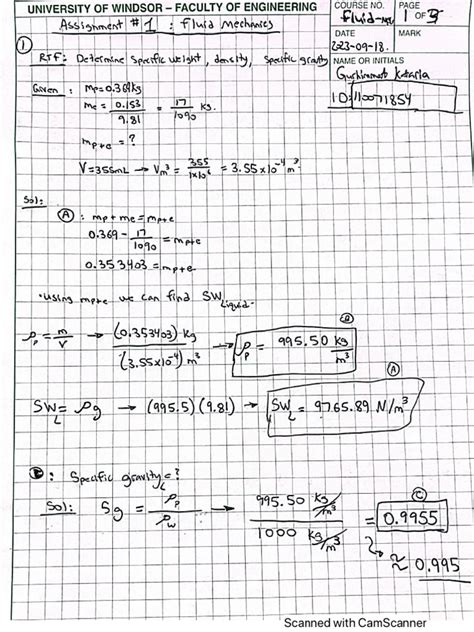 UNIVERSITY OF WINDSOR – FACULTY OF ENGINEERING
COURSE NO.
Fluid-
PAGE
1 OF 3
Assignment #1 : Fluid Mechanics
DATE
223-09-18.
MARK
NAME OR INITIALS
Kataria
ID: 110071854
①
RTF: Determine Specific weight, density, Specific gravity
Given : mp=0.369kg
me = 0.153 / 9.81 = 17 / 1090 kg.
mp+e = ?
V=355mL → Vm³ = 355 / 1x10⁶ = 3.55x10⁻⁴ m³
Sol:
Ⓐ : mp + me = mp+e
0.369 - 17 / 1090 = mp+e
0.353403 = mp+e
• using mp+e we can find SW Liquid.
ρp = m / V → (0.353403) kg / (3.55x10⁻⁴) m³ → ρp = 995.50 kg / m³
Ⓑ
Ⓐ
SWL = ρg → (995.5)(9.81) → SWL = 9765.89 N/m³
: Specific gravity = ?
Sol: Sg = ρp / ρw → 995.50 kg/m³ / 1000 kg/m³ = 0.9955
Ⓒ
≈ 0.995
Scanned with CamScanner